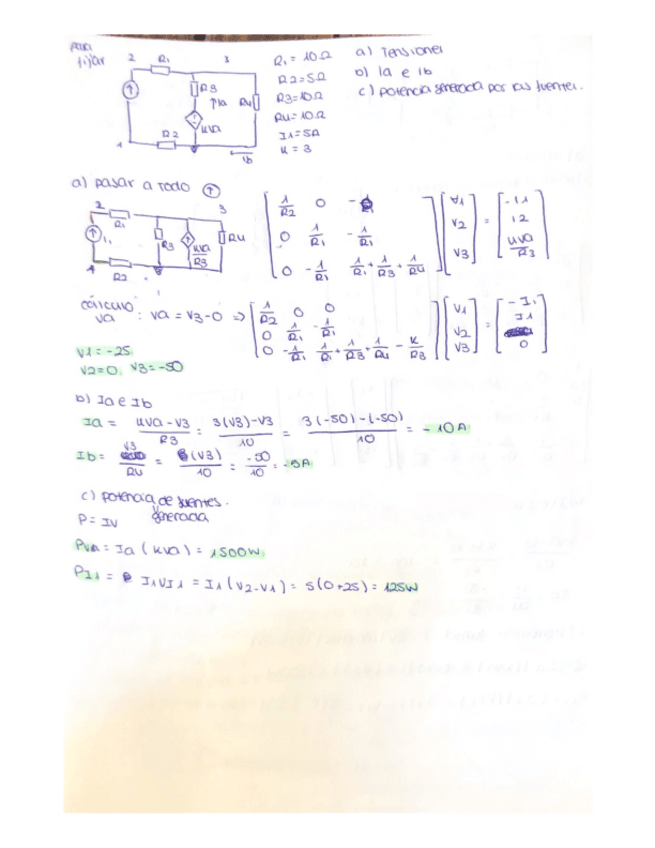 para
fijar
2 R1 3
R3
↑Ia R4
KVa
R2
1
Ib
R1 = 10Ω
R2 = 5Ω
R3 = 10Ω
R4 = 10Ω
I1 = 5A
K = 3
a) Tensiones
b) Ia e Ib
c) potencia generada por las fuentes.
a) pasar a todo ↑
2 R1 3
I1 R3 KVa/R3 R4
1 R2
1/R2 0 - V1 -I1
0 1/R1 -1/R1 V2 = I2
0 -1/R1 1/R1 + 1/R3 + 1/R4 V3 KVa/R3
cálculo Va : Va = V3 - 0 ⇒
1/R2 0 0 V1 -I1
0 1/R1 -1/R1 V2 = I1
0 -1/R1 1/R1 + 1/R3 + 1/R4 - K/R3 V3 0
V1 = -25
V2 = 0, V3 = -50
b) Ia e Ib
Ia = KVa - V3/R3 = 3(V3) - V3/10 = 3(-50) - (-50)/10 = -10A
Ib = V3/R4 = (V3)/10 = -50/10 = -5A
c) potencia de fuentes.
generada
P = IV
PVA = Ia (KVa) = 1500W
PI1 = I1VI1 = I1 (V2 - V1) = 5(0+25) = 125W